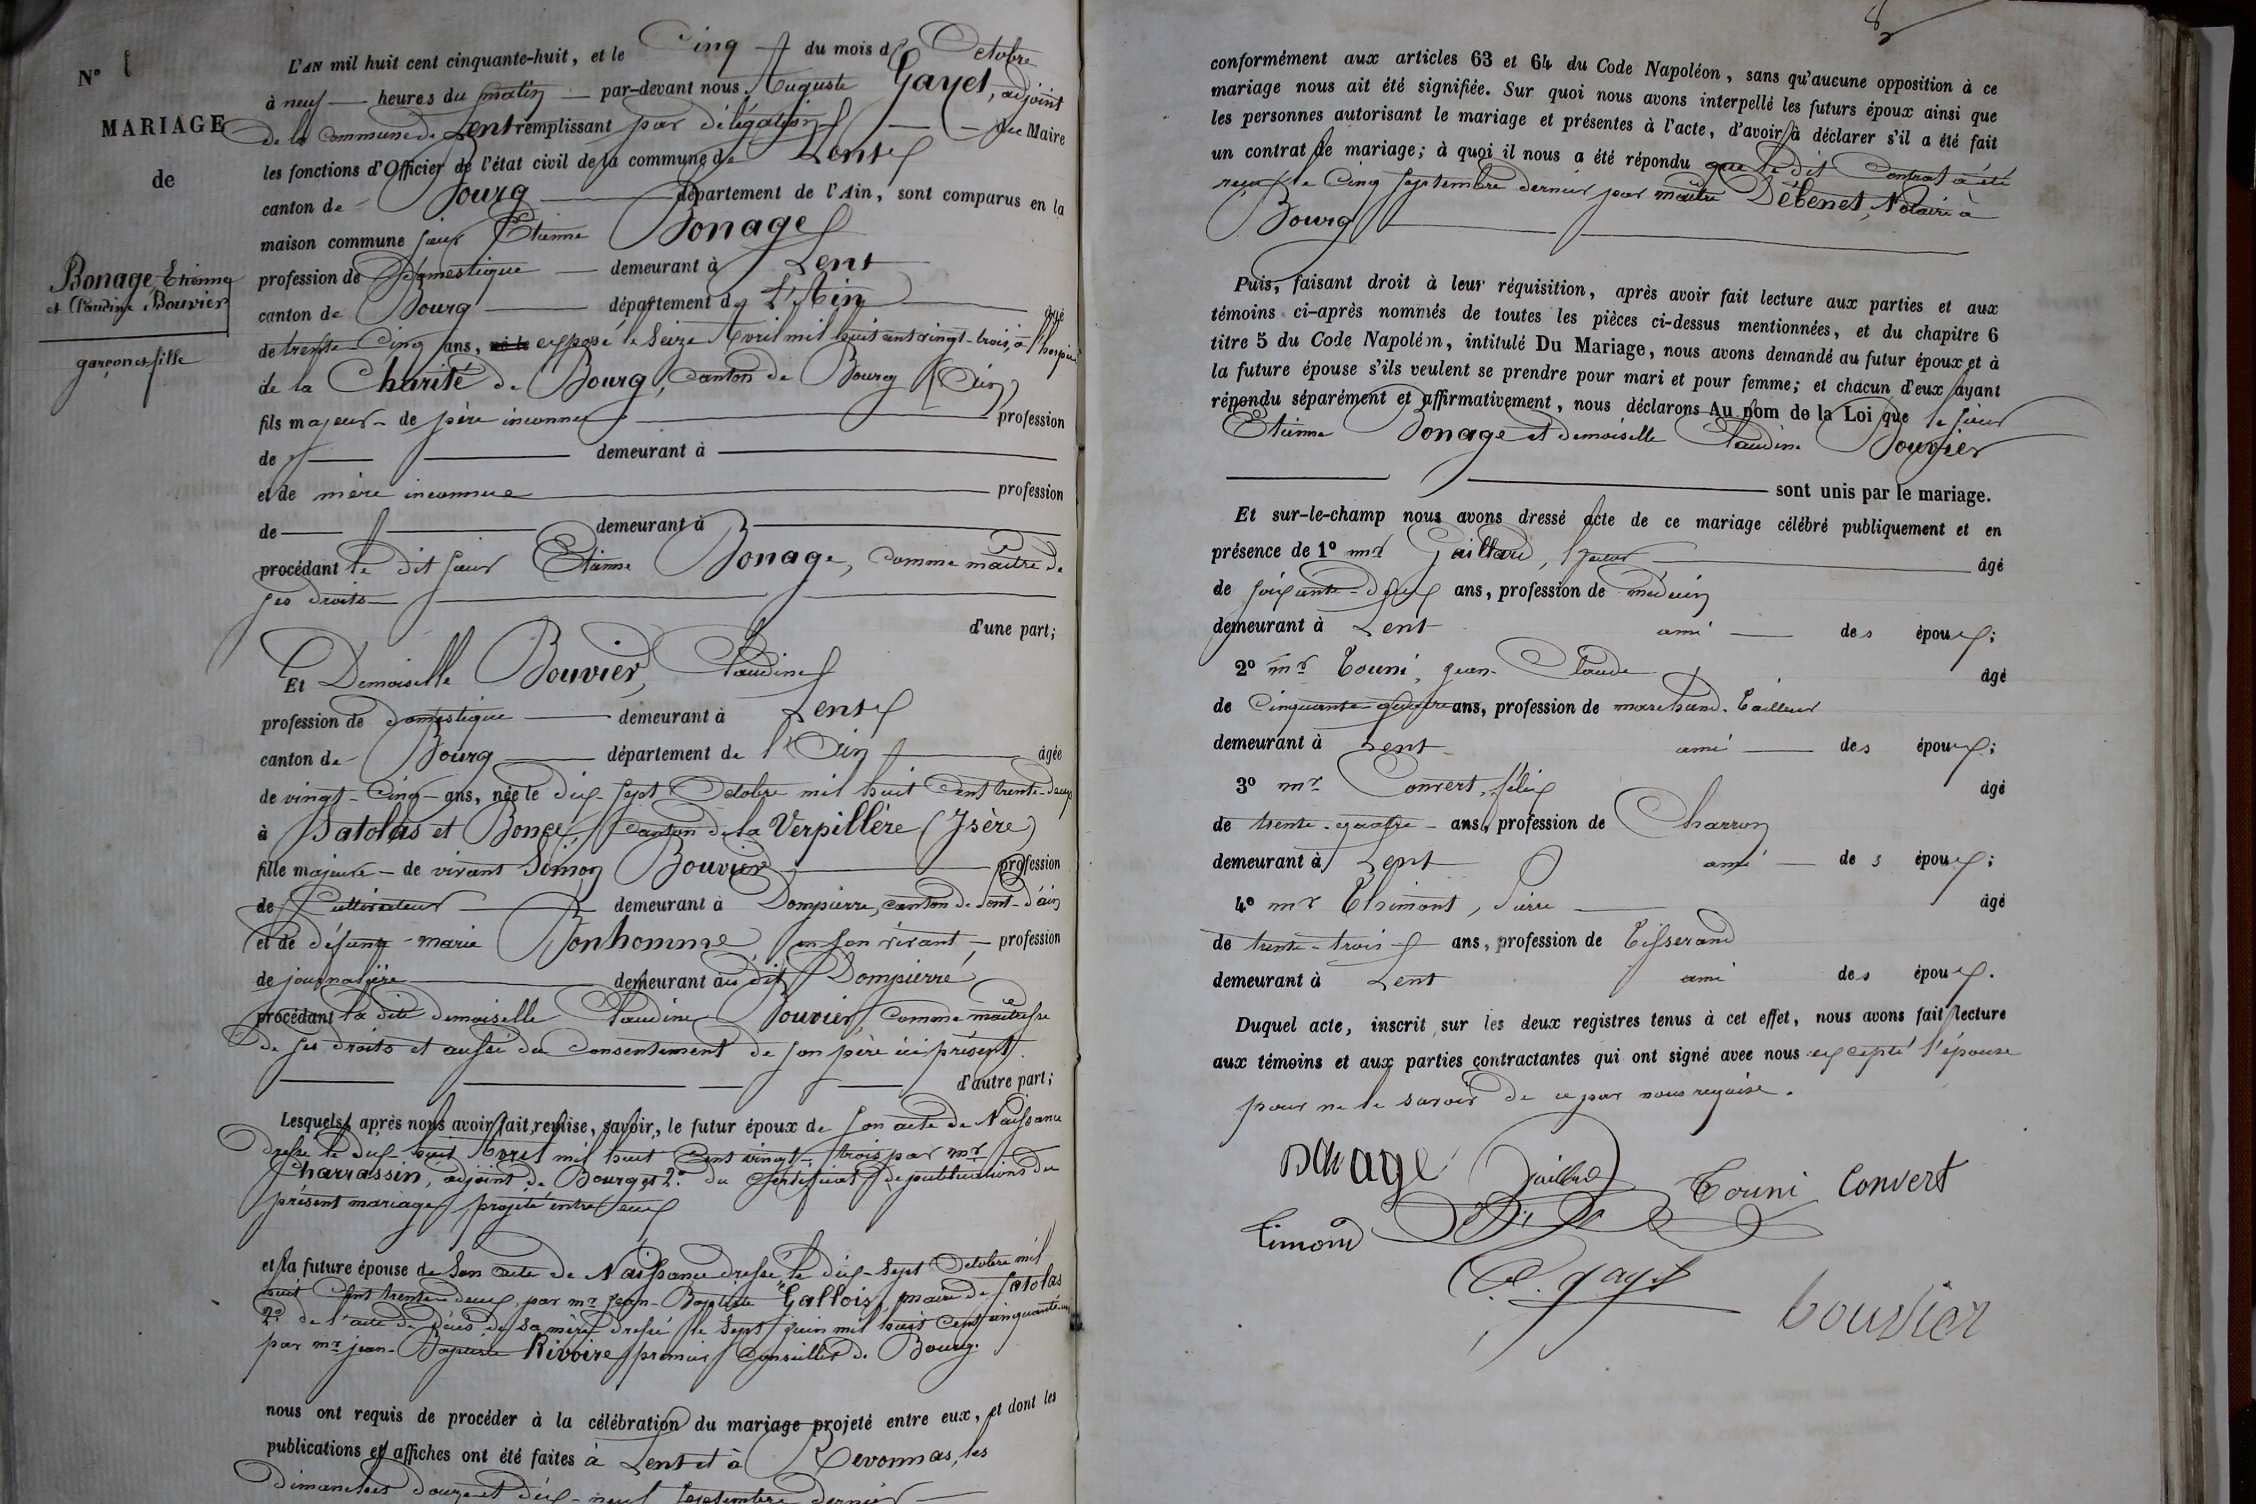 N° 
MARIAGE
de
Bonage, Etienne
et Claudine Bouvier
garçon et fille
L'AN mil huit cent cinquante-huit, et le Cinq du mois d'Octobre
à neuf heures du matin par-devant nous Auguste Gayet, adjoint
de la Commune de Lent remplissant par délégation du Maire
les fonctions d'Officier de l'état civil de la commune de Lent
canton de Bourg département de l'Ain, sont comparus en la
maison commune sieur Etienne Bonage
profession de Domestique demeurant à Lent
canton de Bourg département de L'Ain âgé
de trente Cinq ans, né le exposé le Seize Avril mil huit cent vingt-trois, à l'hospice
de la Charité de Bourg, Canton de Bourg (Ain)
fils majeur de père inconnu profession
de demeurant à
et de mère inconnue profession
de demeurant à
procédant le dit sieur Etienne Bonage, comme maître de
ses droits
d'une part;
Et Demoiselle Bouvier, Claudine
profession de domestique demeurant à Lent
canton de Bourg département de l'Ain âgée
de vingt-Cinq ans, née le dix-sept Octobre mil huit Cent trente-deux
à Satolas et Bonce, canton de la Verpillère (Isère)
fille majeure de vivant Simon Bouvier profession
de Cultivateur demeurant à Dompierre, canton de Pont-d'ain
et de défunte marie Bonhomme, en son vivant, profession
de journalière demeurant au dit Dompierre
procédant la dite demoiselle Claudine Bouvier, comme maîtresse
de ses droits et aussi du Consentement de son père ici présent.
d'autre part;
Lesquels, après nous avoir fait remise, savoir, le futur époux de son acte de Naissance
dressé le dix-huit Avril mil huit Cent vingt-trois par mr
Charrassin, adjoint de Bourg, et 2° du Certificat de publications du
présent mariage projeté entre eux
et la future épouse de son acte de Naissance dressé le dix-sept Octobre mil
huit Cent trente-deux, par mr Jean-Baptiste Gallois, maire de Satolas
2° de l'acte de Décès de sa mère dressé le Sept juin mil huit Cent cinquante-un
par mr jean-Baptiste Rivoire, premier Conseiller de Bourg.
nous ont requis de procéder à la célébration du mariage projeté entre eux, et dont les
publications et affiches ont été faites à Lent et à Revonnas, les
dimanches douze et dix-neuf Septembre dernier
8
conformément aux articles 63 et 64 du Code Napoléon, sans qu'aucune opposition à ce
mariage nous ait été signifiée. Sur quoi nous avons interpellé les futurs époux ainsi que
les personnes autorisant le mariage et présentes à l'acte, d'avoir à déclarer s'il a été fait
un contrat de mariage; à quoi il nous a été répondu que le dit Contrat a été
reçu le Cinq Septembre dernier par maître Débenet, Notaire à
Bourg
Puis, faisant droit à leur réquisition, après avoir fait lecture aux parties et aux
témoins ci-après nommés de toutes les pièces ci-dessus mentionnées, et du chapitre 6
titre 5 du Code Napoléon, intitulé Du Mariage, nous avons demandé au futur époux et à
la future épouse s'ils veulent se prendre pour mari et pour femme; et chacun d'eux ayant
répondu séparément et affirmativement, nous déclarons Au nom de la Loi que le sieur
Etienne Bonage et demoiselle Claudine Bouvier
sont unis par le mariage.
Et sur-le-champ nous avons dressé acte de ce mariage célébré publiquement et en
présence de 1° mr Gaillard, âgé
de soixante-deux ans, profession de médecin
demeurant à Lent ami des époux;
2° mr Touni, jean-Claude âgé
de Cinquante-quatre ans, profession de marchand-tailleur
demeurant à Lent ami des époux;
3° mr Convert, félix âgé
de trente-quatre ans, profession de Charron
demeurant à Lent ami des époux;
4° mr Thimont, Pierre âgé
de trente-trois ans, profession de Tisserand
demeurant à Lent ami des époux.
Duquel acte, inscrit sur les deux registres tenus à cet effet, nous avons fait lecture
aux témoins et aux parties contractantes qui ont signé avec nous excepté l'épouse
pour ne le savoir de ce par nous requise.
Bonage Gaillard Touni Convert
Timond
A. gayet
bouvier